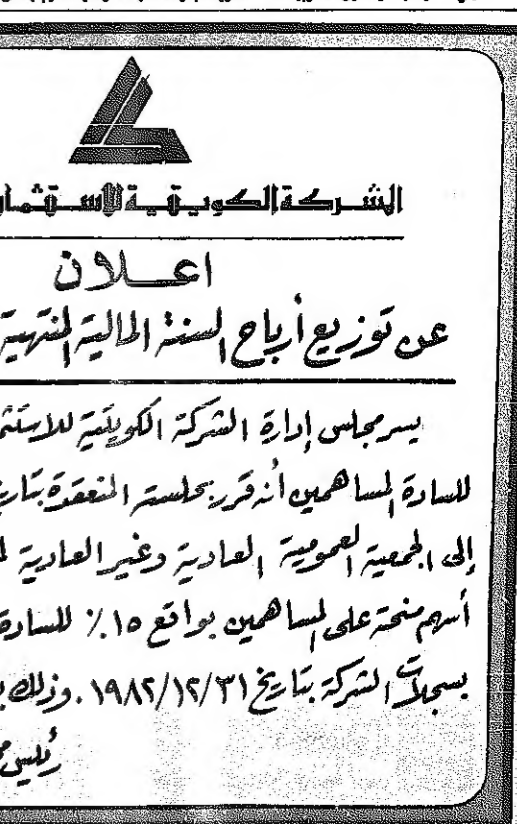 الشركة الكويتية للاستثمار
اعلان
عن توزيع أرباح السنة المالية المنتهية
يسر مجلس إدارة الشركة الكويتية للاستثم
للسادة المساهمين أنه قرر بجلسته المنعقدة بتاري
إلى الجمعية العمومية العادية وغير العادية
أسهم منحة على المساهمين بواقع ١٥٪ للسادة
بسجلات الشركة بتاريخ ١٩٨٢/١٢/٣١ . وذلك
رئيس